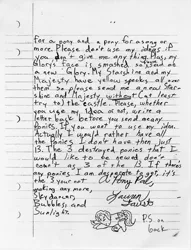 for a pony and a pony for a song or
more. Please don't use my ideas if
you don't give me any thing. Plus, my
Glory tore is smashed so send me
a new Glory. My Starshine and my
Majesty have yellow specks all over
them so please send me a new Star-
shine and Majesty without Cat least
try to the castle. Please, whether
you use my idea or not, write a
letter back before you send me any
Ponies. If you want to use my idea,
Actually I would rather have all
the Ponies I don't have than just
13. The 3 destroyed ponies that I
would like to be renewed don't
count as 3 of the 13. If there's
any ponies I am desperate to get, it's
the 3 you're not
making any more,
Skydancer,
Bubbles and
Sunlight.
A Pony Pal,
Lauren
Faust
P.S. on
back